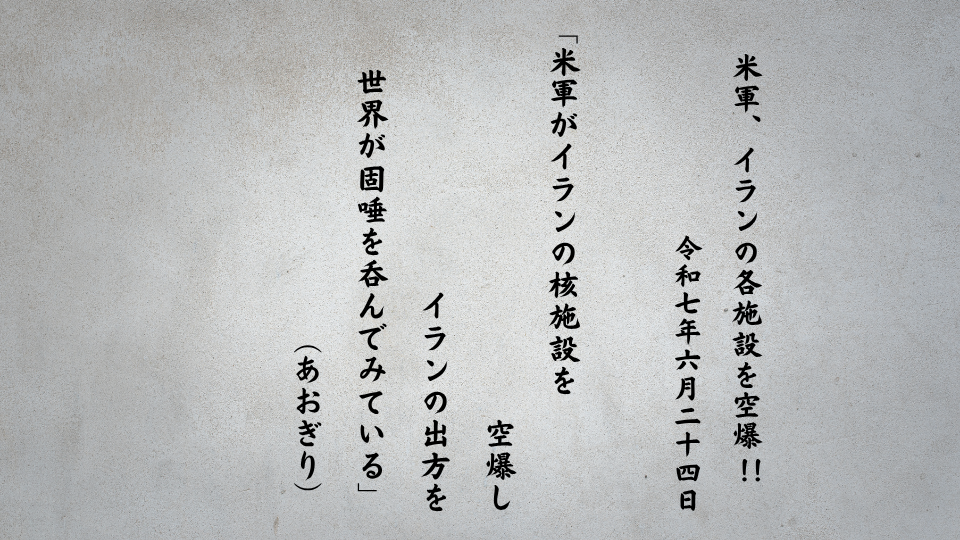 米軍、イランの各施設を空爆!!
令和七年六月二十四日
「米軍がイランの核施設を
空爆し
イランの出方を
世界が固唾を呑んでみている」
(あおぎり)